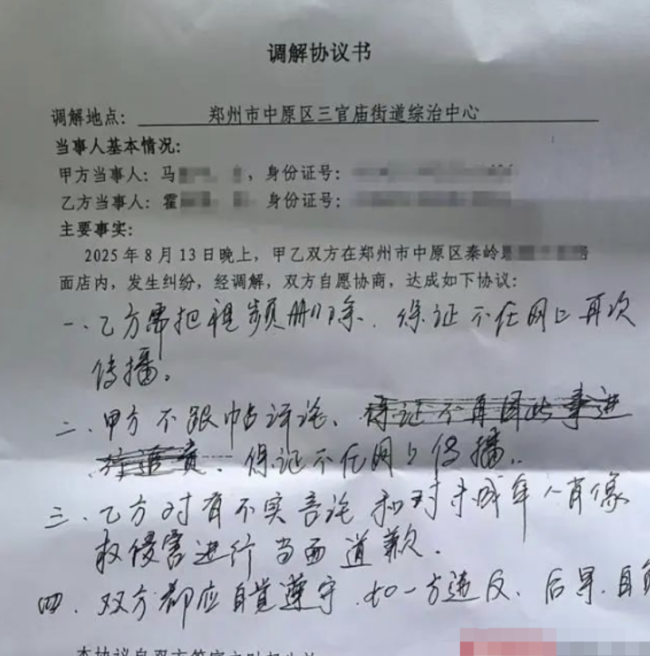 调解协议书
调解地点：郑州市中原区三官庙街道综治中心
当事人基本情况：
甲方当事人：马 ，身份证号：
乙方当事人：霍 ，身份证号：
主要事实：
2025年8月13日晚上，甲乙双方在郑州市中原区秦岭
面店内，发生纠纷，经调解，双方自愿协商，达成如下协议：
一、乙方需把视频删除、保证不在网上再次
传播。
二、甲方不跟帖评论、保证不再因此事进
保证不在网上传播。
三、乙方对有不实言论和对未成年人肖像
权侵害进行当面道歉.
四、双方都应自觉遵守,如一方违反、后果自
本协议自双方签字